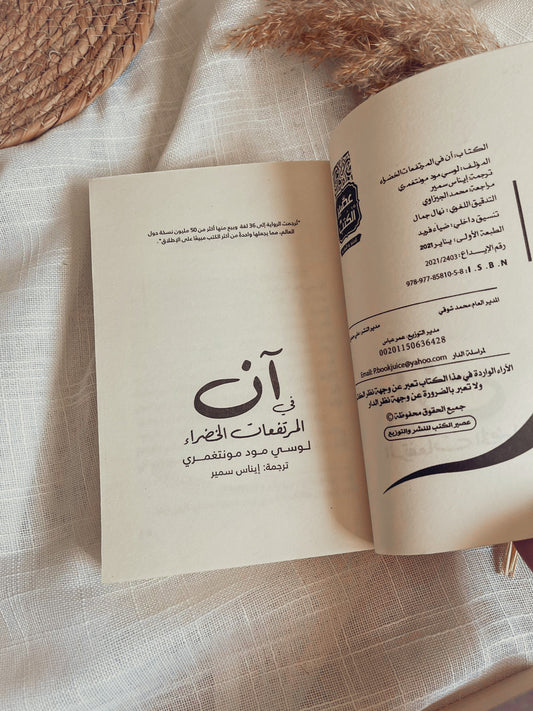 الكتاب: آن في المرتفعات الخضراء
المؤلف: لوسي مود مونتغمري
ترجمة: إيناس سمير
مراجعة: محمد الجيزاوي
التدقيق اللغوي: نهال جمال
تنسيق داخلي: ضياء فريد
الطبعة الأولى: يناير 2021
رقم الإيداع: 2021/2403
978-977-85810-5-8 : I . S . B . N
عصير
الكتب
المدير العام: محمد شوقي
مدير النشر: علي
مدير التوزيع: عمر عباس
00201150636428
لمراسلة الدار Email: P.bookjuice@yahoo.com
الآراء الواردة في هذا الكتاب تعبر عن وجهة نظر
ولا تعبر بالضرورة عن وجهة نظر الدار
جميع الحقوق محفوظة ©
عصير الكتب للنشر والتوزيع
"تُرجمت الرواية إلى 36 لغة وبيع منها أكثر من 50 مليون نسخة حول
العالم، مما يجعلها واحدة من أكثر الكتب مبيعًا على الإطلاق".
آن
في
المرتفعات الخضراء
لوسي مود مونتغمري
ترجمة: إيناس سمير